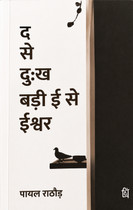 द
से
दुःख
बड़ी ई से
ईश्वर
पायल राठौड़